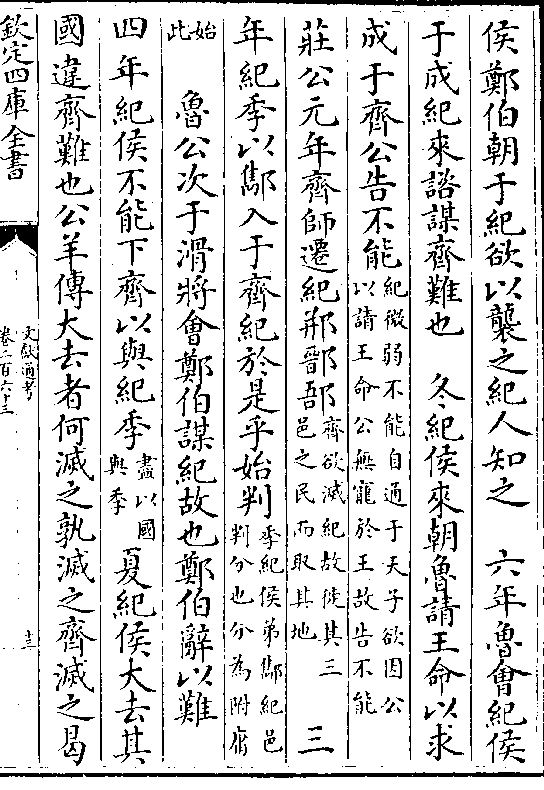 侯鄭伯朝于紀欲以襲之紀人知之　六年魯會紀侯
于成紀來諮謀齊難也　冬紀侯來朝魯請王命以求
成于齊公告不能紀微弱不能自通于天子欲因公以請王命公無寵於王故告不能
莊公元年齊師遷紀郱鄑郚齊欲滅紀故徙其三邑之民而取其地　三
年紀季以酅入于齊紀於是乎始判季紀侯弟酅紀邑判分也分為附庸
始此　魯公次于滑將會鄭伯謀紀故也鄭伯辭以難
四年紀侯不能下齊以與紀季盡以國與季　夏紀侯大去其
國違齊難也公羊傳大去者何滅之孰滅之齊滅之曷
欽定四庫全書
文獻通考
卷二百六十三
十三